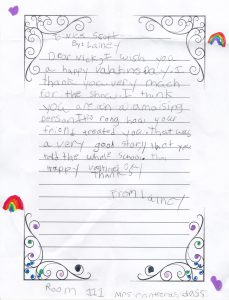 Nick Scott
By: Lainey
Dear Nick, I wish you
a happy Valatins Day. I
thank you very much
for the show. I think
you are an amaising
person. It's rong how your
friend treated you. That was
a very good story that you
told the whole school. I'm
happy
Thanks
From Lainey
Room 111 Mrs. Contreras class